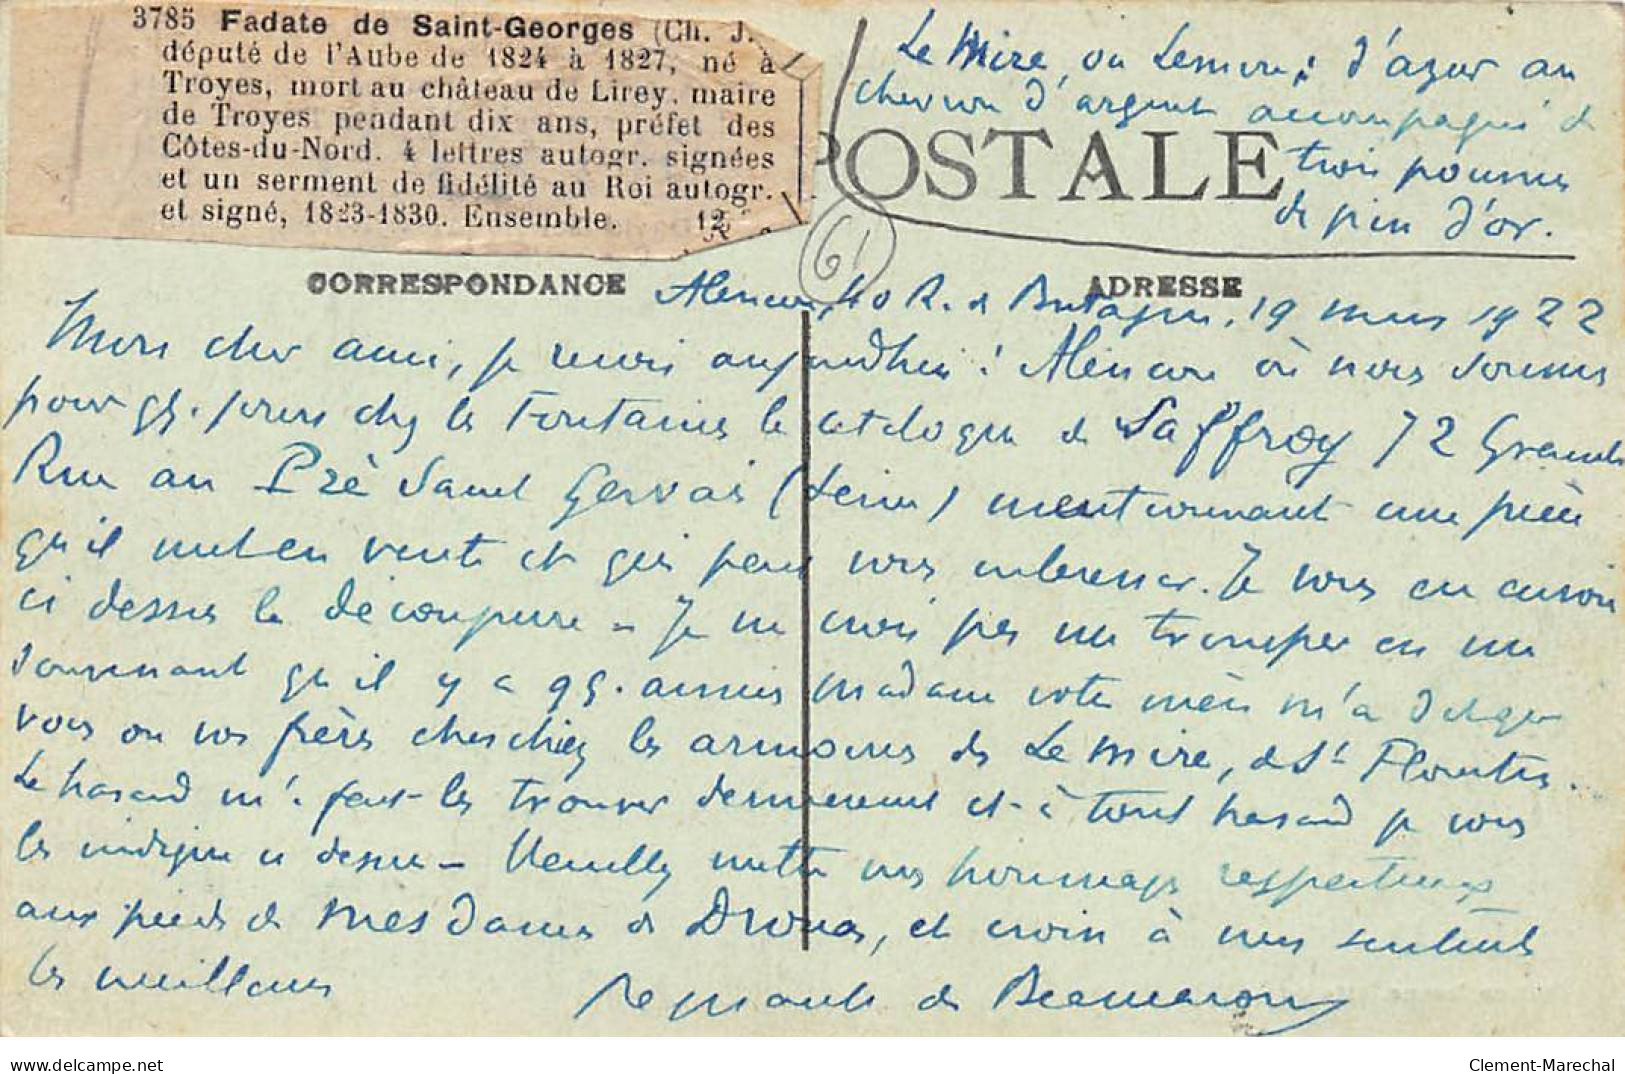 3785 Fadate de Saint-Georges (Ch. J.
député de l'Aube de 1824 à 1827, né à
Troyes, mort au château de Lirey, maire
de Troyes pendant dix ans, préfet des
Côtes-du-Nord. 4 lettres autogr. signées
et un serment de fidélité au Roi autogr.
et signé, 1823-1830. Ensemble. 12
Le Mire, ou Lemire : d'azur au
chevron d'argent accompagné de
trois pommes
de pin d'or.
POSTALE
61
CORRESPONDANCE
ADRESSE
Alençon, 40 R. de Bretagne, 19 mars 1922
Mon cher ami, je reçois aujourdhui à Alençon où nous sommes
pour qq. jours chez les Fontaines le catalogue de Saffroy 72 Grande
Rue au Pré Saint Gervais (Seine) mentionnant une pièce
qu'il met en vente et qui peut vous intéresser. Je vous en envoie
ci dessus la découpure – Je ne crois pas me tromper en me
souvenant qu'il y a qq. années Madame votre mère m'a dit que
vous ou vos frères cherchiez les armoiries de Le Mire, de St
Le hasard m'a fait les trouver dernièrement et à tout hasard je vous
les indique ci dessus – Veuillez mettre mes hommages respectueux
aux pieds de Mesdames de Drouas, et croire à mes sentiments
les meilleurs
de
delcampe.net
Clement-Marechal